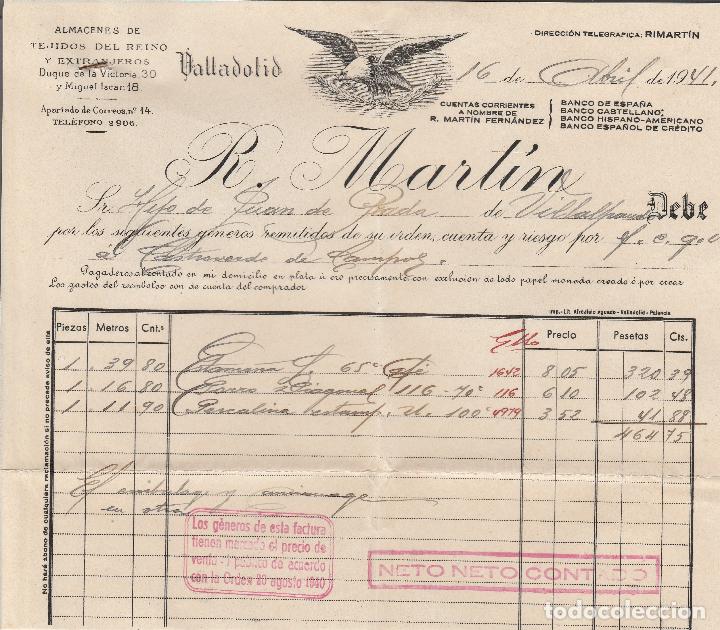 ALMACENES DE
TEJIDOS DEL REINO
Y EXTRANJEROS
Duque de la Victoria, 30
y Miguel Iscar, 18.
Apartado de Correos, nº 14.
TELÉFONO 2906.
Valladolid
DIRECCIÓN TELEGRAFICA: RIMARTÍN
16 de Abril de 1941.
CUENTAS CORRIENTES
A NOMBRE DE
R. MARTÍN FERNÁNDEZ
BANCO DE ESPAÑA
BANCO CASTELLANO
BANCO HISPANO-AMERICANO
BANCO ESPAÑOL DE CRÉDITO
R. Martín
Sr. Hijo de Juan de Prada de Villalpando Debe
por los siguientes géneros remitidos de su orden, cuenta y riesgo por f.c. 900
á Castroverde de Campos.
Pagaderos al contado en mi domicilio en plata ú oro precisamente con exclusion de todo papel moneda creado ó por crear
Los gastos del reembolso son de cuenta del comprador
Imp.-Lit. Afrodisio Aguado.-Valladolid - Palencia
Piezas Metros Cnt.s Precio Pesetas Cts.
1 39 80 Etamina 65c Café 1642 8 05 320 39
1 16 80 Diagonal 116 - 70c 116 6 10 102 48
1 11 90 Percalina estamp. 100c 4979 3 52 41 88
464 75
El y
en
Los géneros de esta factura
tienen marcado el precio de
venta al público de acuerdo
con la Orden 20 agosto 1940
NETO NETO CONTADO
No haré abono de cualquiera reclamación si no precede aviso de esta
todocoleccion